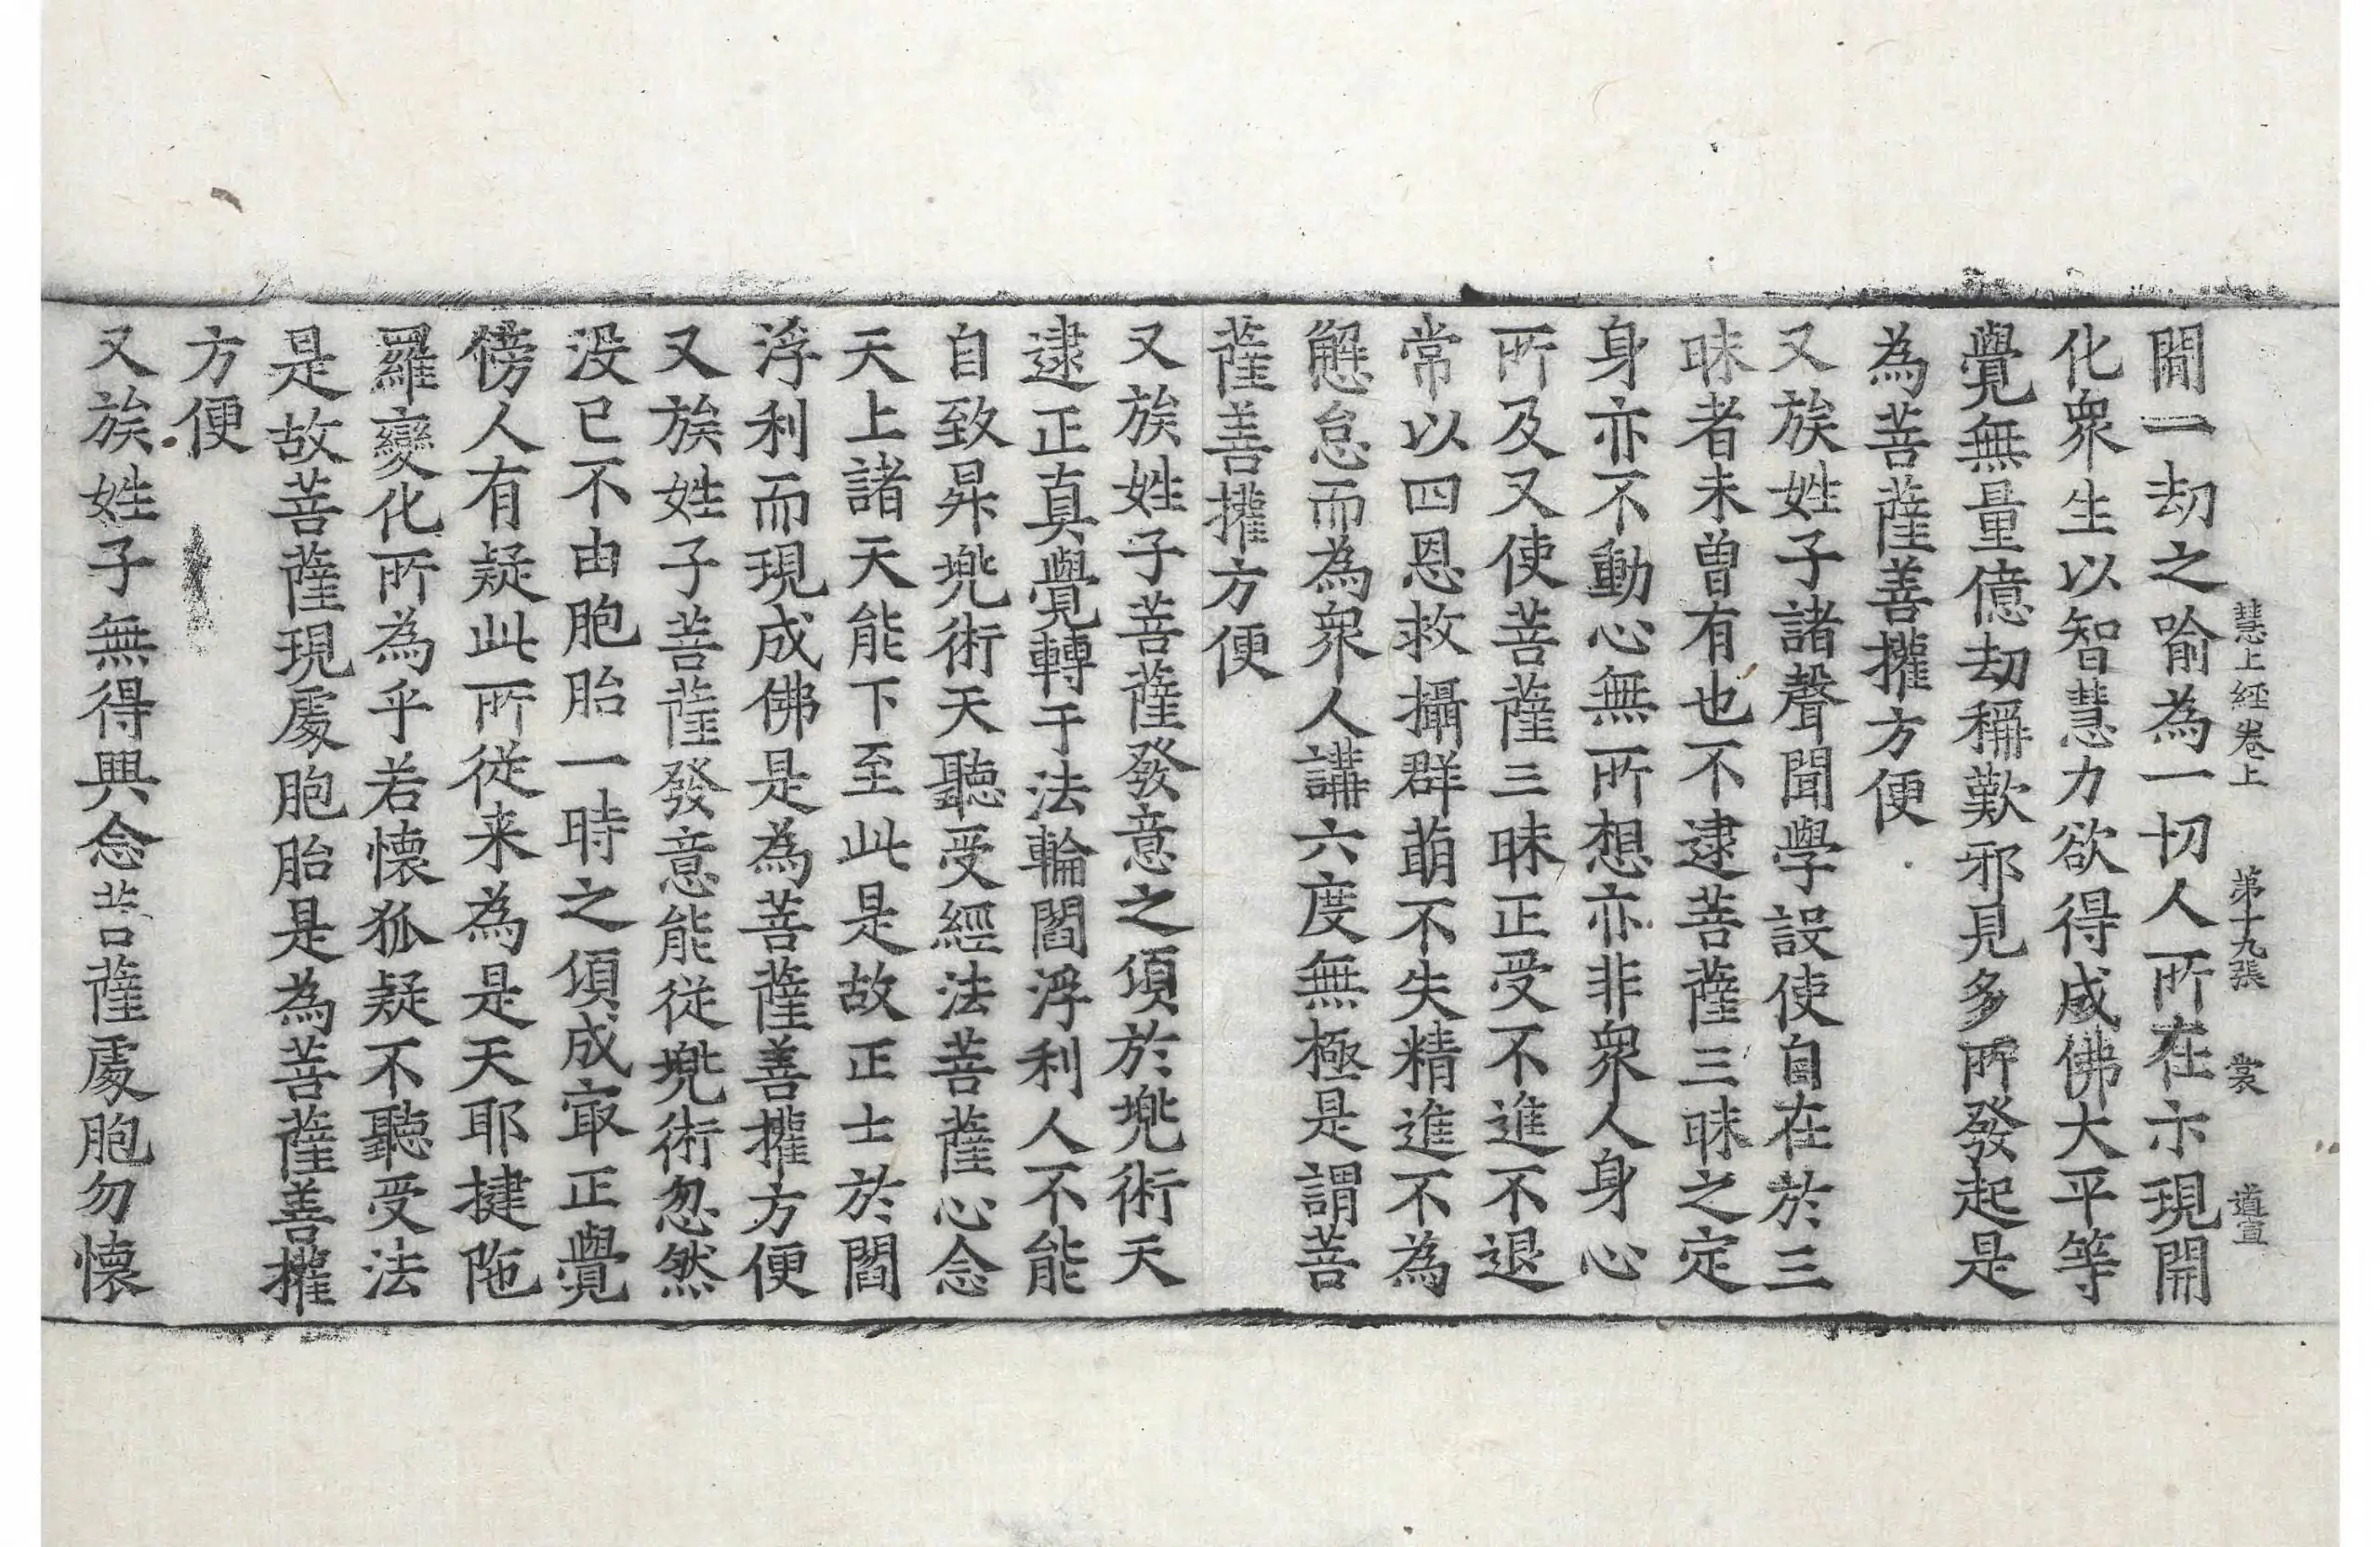 慧上經卷上　第十九張　裳　道宣
閒一劫之喻為一切人所在示現開
化衆生以智慧力欲得成佛大平等
覺無量億劫稱歎邪見多所發起是
為菩薩善權方便
又族姓子諸聲聞學設使自在於三
昧者未曽有也不逮菩薩三昧之定
身亦不動心無所想亦非衆人身心
所及又使菩薩三昧正受不進不退
常以四恩救攝群萌不失精進不為
懈怠而為衆人講六度無極是謂菩
薩善權方便
又族姓子菩薩發意之頃於兠術天
逮正真覺轉于法輪閻浮利人不能
自致昇兠術天聽受經法菩薩心念
天上諸天能下至此是故正士於閻
浮利而現成佛是為菩薩善權方便
又族姓子菩薩發意能從兠術忽然
没已不由胞胎一時之頃成㝡正覺
傍人有疑此所從来為是天耶揵陁
羅變化所為乎若懷狐疑不聽受法
是故菩薩現處胞胎是為菩薩善權
方便
又族姓子無得興念菩薩處胞勿懷